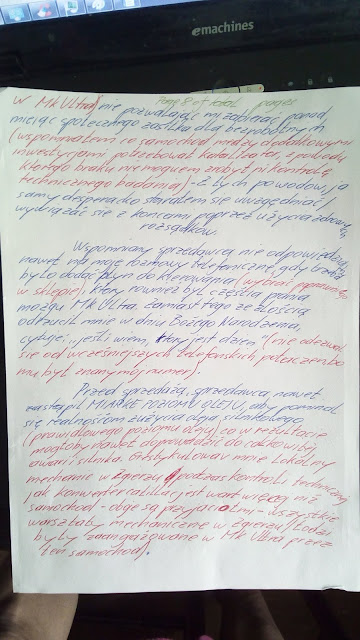 emachines
Page 8 of total pages
W MkUltra) nie pozwalając mi zabierać ponad
miesiąc społecznego zasiłka dla bezrobotnych
(wspomniałem co samochod między dodatkowymi
inwestycjami potrzebował katalizator, z powodu
którego braku nie mogłem zrobyt pi kontrolę
technicznego badania) - Z tych powodow, ja
samy desperacko starałem się uwzgledniać/
wywiązać się z koncami poprzez użycia zdrowych
rozsądkow.
Wspomniany sprzedawca nie odpowiedział
nawet na moje rozmowy telefoniczne, gdy trzeba
było dodać płyn do kierowania (wybrać poprawny
w sklepie), który rownież był częścią prania
mozgu Mk Ultra. zamiast tego ze złością
odrzucił mnie w dniu Bożego Narodzenia,
cytuję: "jeśli wiem, ktory jest dzien" (nie odezwał
się od wcześniejszych telefonskich połaczen bo
mu był znany mój numer).
Przed sprzedażą, sprzedawca nawet
zastąpił MIARKE POZIOMU OLEJU, aby pominąć
się realnośćme zużycia oleju silnikowego
(prawidlowego poziomu oleju) co w rezultacie
mogłoby nawet doprowadzić do całkowitej
awarii silnika. mnie lokalny
mechanic w Zgierzu podczas kontroli technicznej
jak konwerter catilac jest wart więcej niż
samochod - obje są przyjaciółmi - wszystkie
warsztaty mechaniczne w Zgierzu/Łodzi
były zaangażowane w Mk Ultra przez
ten samochod).